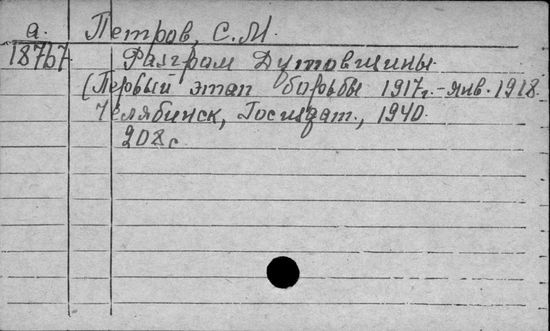 а. Петров, С.М.
18767 Разгром Дутовщины.
(Первый этап борьбы 1917г.-янв.1918.
Челябинск, Госиздат., 1940.
208с